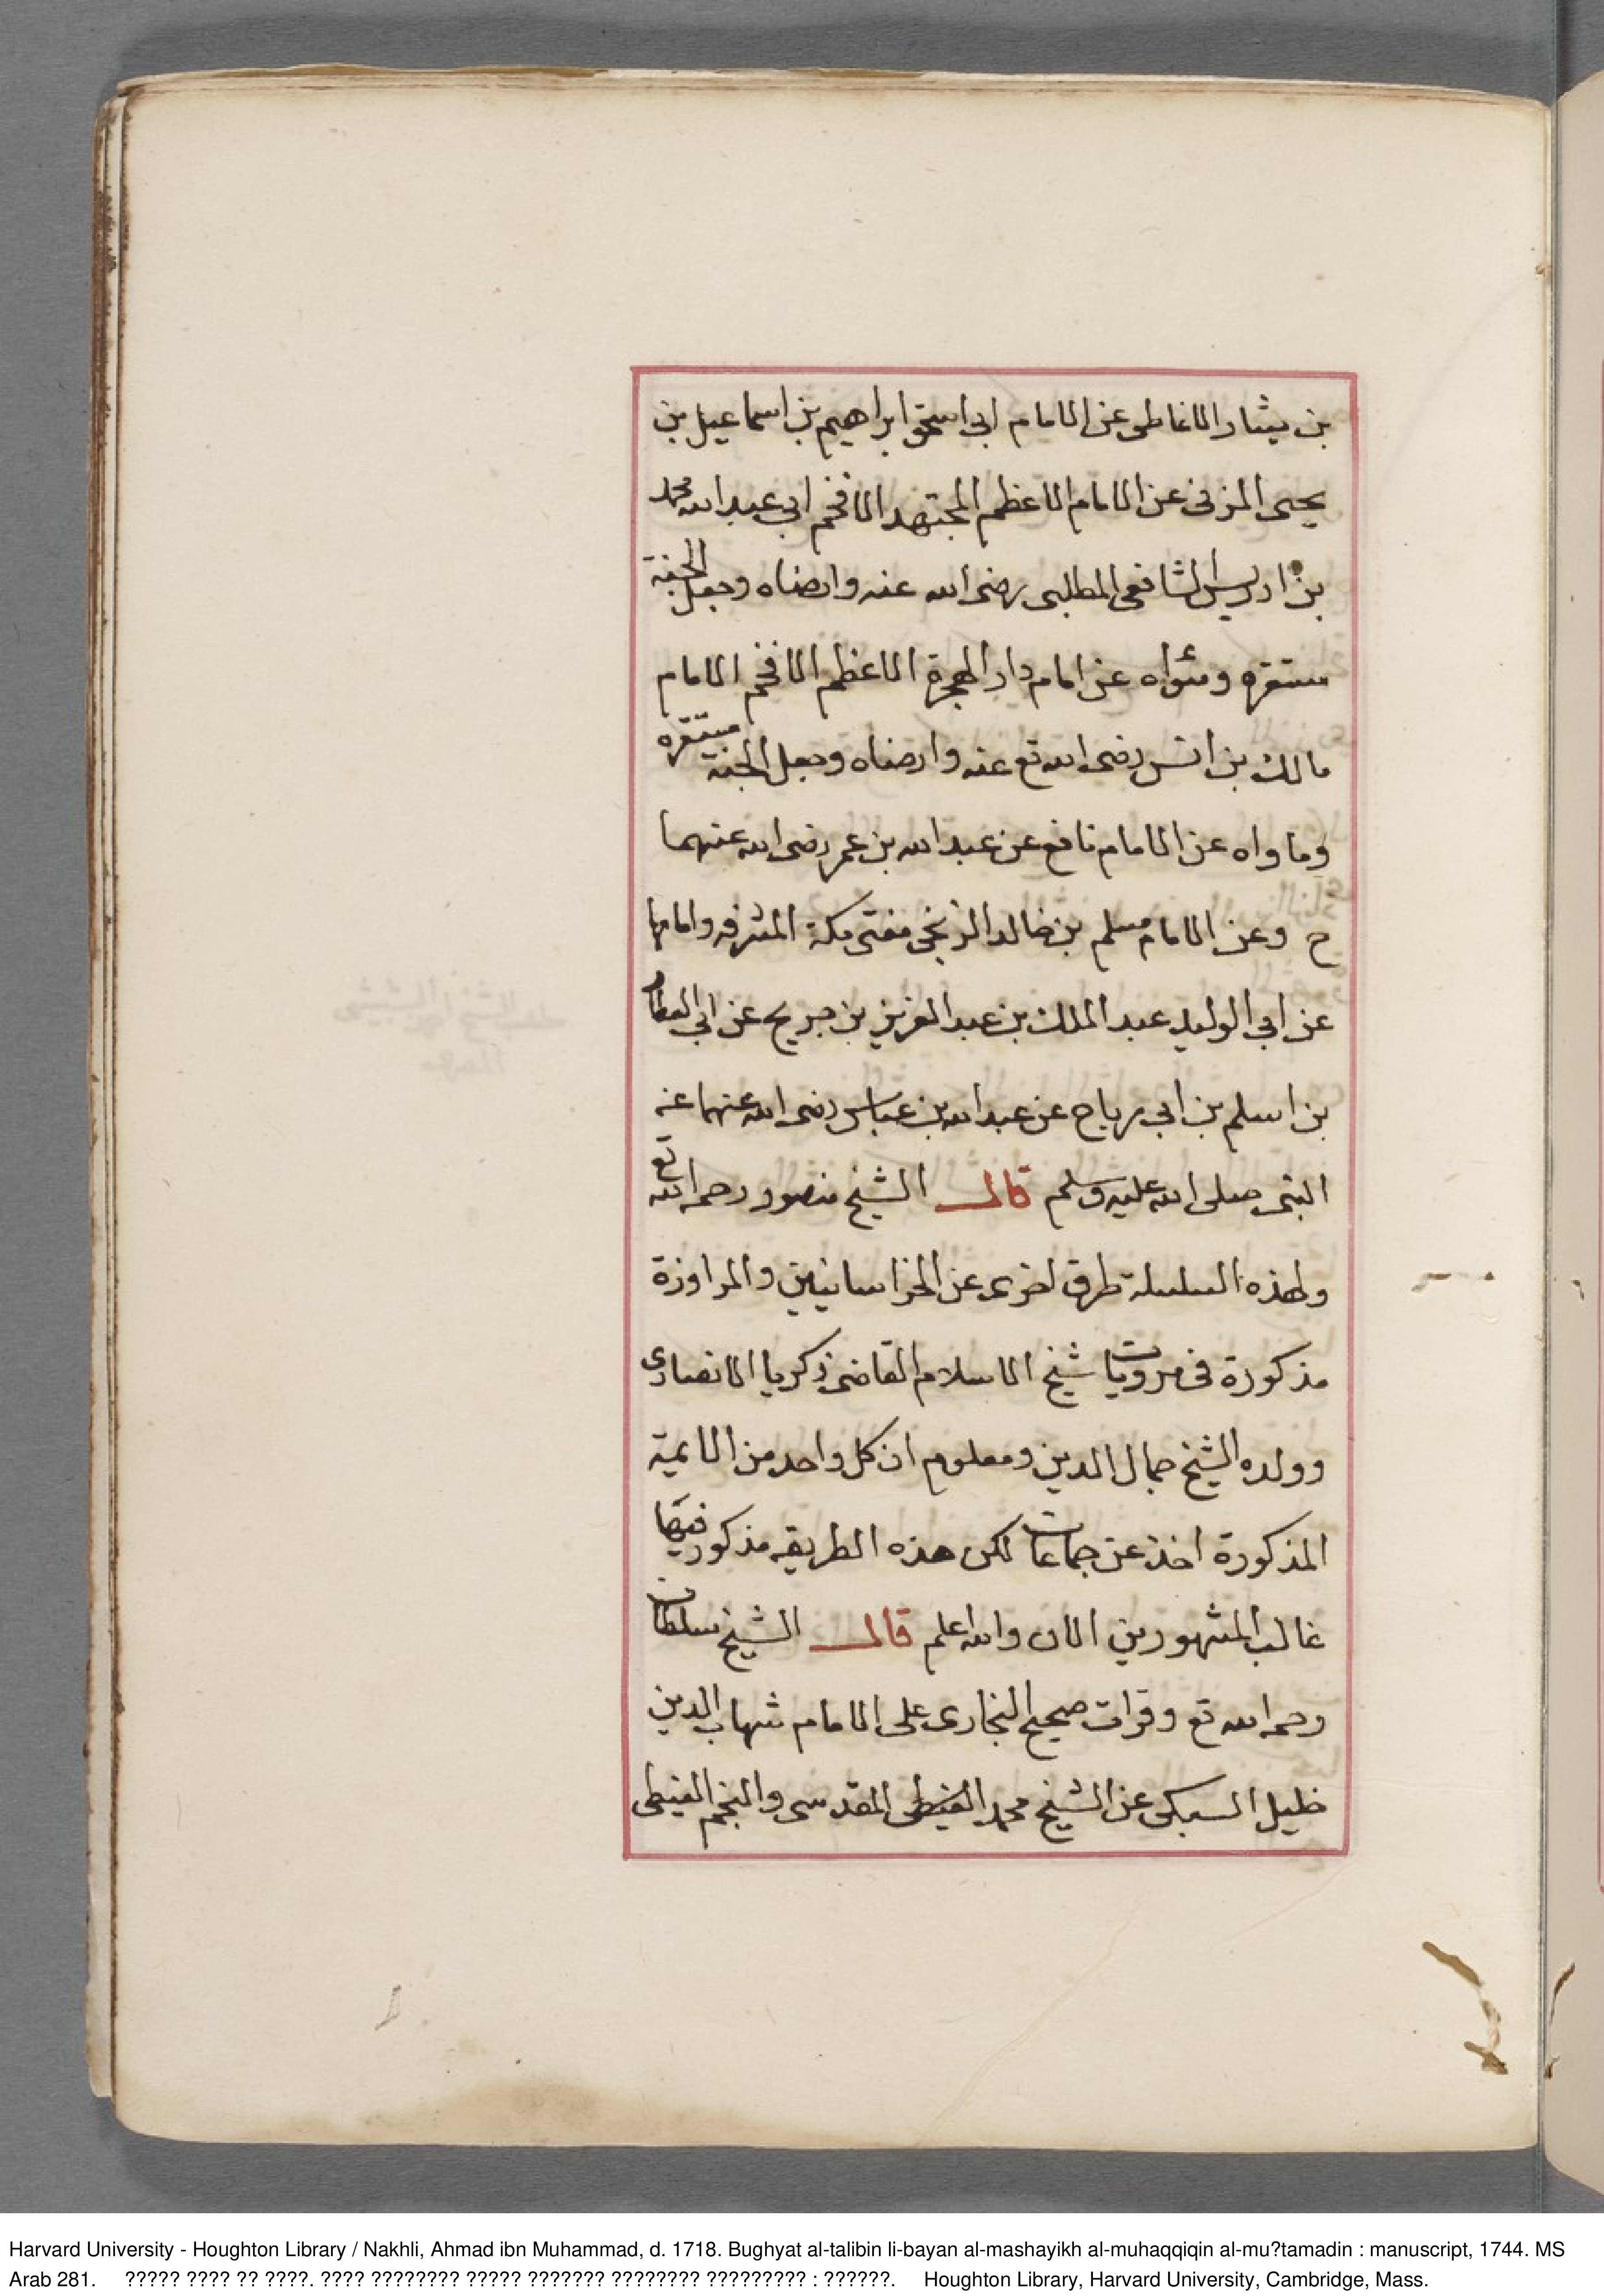 بن بشار الانماطى عن الامام ابى اسحق ابراهيم بن اسماعيل بن
يحيى المزنى عن الامام الاعظم المجتهد الافخم ابى عبد الله محمد
بن ادريس الشافعى المطلبى رضى الله عنه وارضاه وجعل الجنة
مستقره ومثواه عن امام دار الهجرة الاعظم الافخم الامام
مالك بن انس رضى الله تع عنه وارضاه وجعل الجنة مستقره
وماواه عن الامام نافع عن عبد الله بن عمر رضى الله عنهما
ح وعن الامام مسلم بن خالد الزنجى مفتى مكة المشرفه وامامها
عن ابى الوليد عبد الملك بن عبد العزيز بن جريج عن ابى العطا
بن اسلم بن ابى رباح عن عبد الله بن عباس رضى الله عنهما عن
النبى صلى الله عليه وسلم قال الشيخ منصور رحمه الله تع
ولهذه السلسلة طرق اخرى عن الخراسانيين والمراوزة
مذكورة فى مرويات شيخ الاسلام القاضى زكريا الانصارى
وولده الشيخ جمال الدين ومعلوم ان كل واحد من الايمة
المذكورة اخذ عن جماعات لكن هذه الطريقه مذكور فيها
غالب المشهورين الان والله اعلم قال الشيخ سلطان
رحمه الله تع وقرات صحيح البخارى على الامام شهاب الدين
خليل السبكى عن الشيخ محمد المقدسى والنجم الغيطى
Harvard University - Houghton Library / Nakhli, Ahmad ibn Muhammad, d. 1718. Bughyat al-talibin li-bayan al-mashayikh al-muhaqqiqin al-mu?tamadin : manuscript, 1744. MS
Arab 281. ????? ???? ?? ????. ???? ???????? ????? ??????? ???????? ????????? : ??????. Houghton Library, Harvard University, Cambridge, Mass.